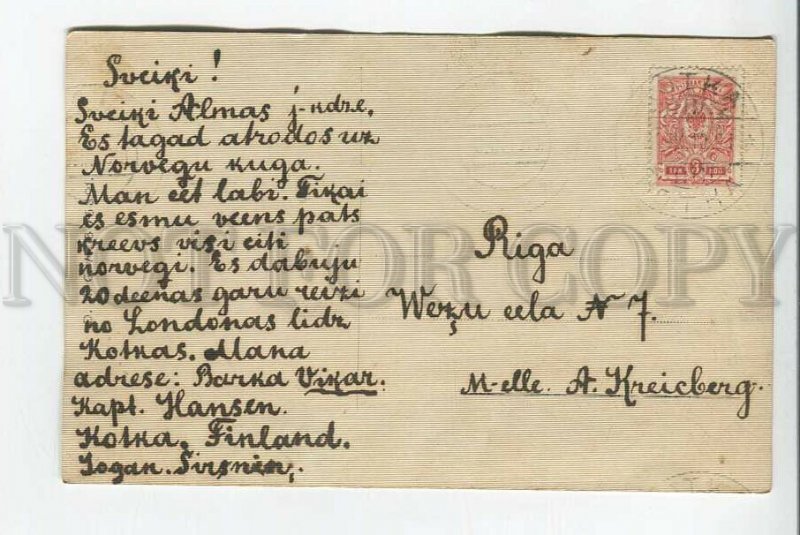 Sveiki!
Sveiki Almas j-kdze.
Es tagad atrodos uz
Norvegu kuga.
Man eet labi. Tikai
es esmu veens pats
kreevs visi citi
norvegi. Es dabuju
20 deenas garu reizi
no Londonas lidz
Kotkas. Mana
adrese: Barka Vikar.
Kapt. Hansen.
Kotka. Finland.
Riga
Wezu eela N 7.
M-elle. A. Kreicberg.
3
NOT FOR COPY